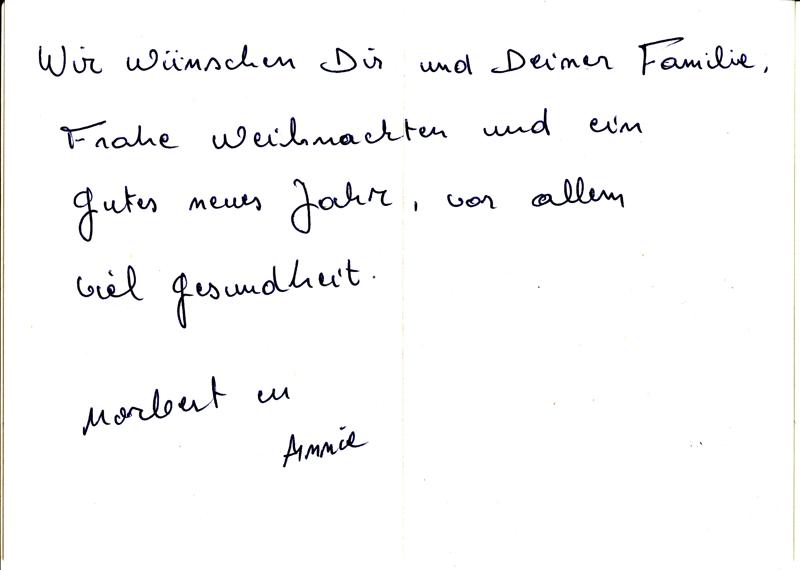 Wir wünschen Dir und Deiner Familie,
Frohe Weihnachten und ein
gutes neues Jahr, vor allem
viel gesundheit.
Norbert en
Annie